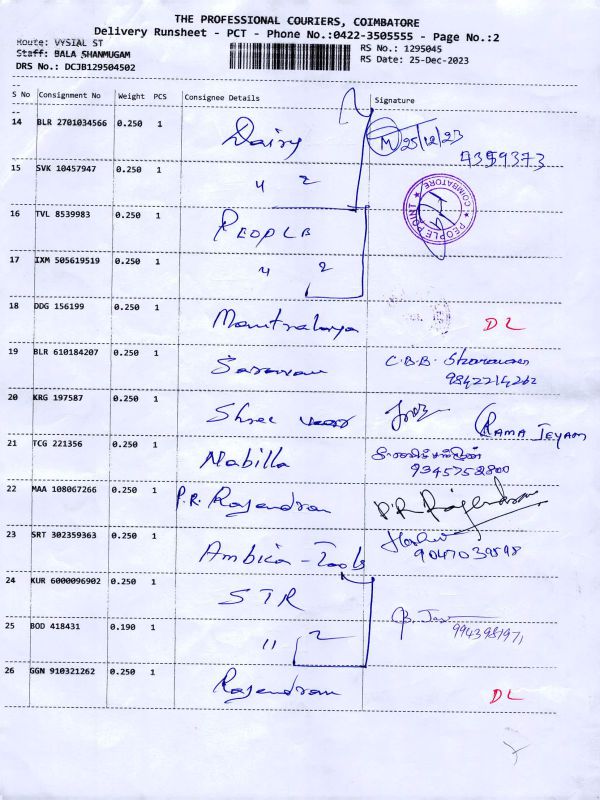 THE PROFESSIONAL COURIERS, COIMBATORE
Delivery Runsheet - PCT - Phone No.:0422-3505555 - Page No.:2
Route: VYSIAL ST
Staff: BALA SHANMUGAM
DRS No.: DCJB129504502
RS No.: 1295045
RS Date: 25-Dec-2023
S No Consignment No Weight PCS Consignee Details Signature
14 BLR 2701034566 0.250 1 Dairy M 25/12/23
15 SVK 10457947 0.250 1 " 2
PEOPLE POINT ★ COIMBATORE ★
16 TVL 8539983 0.250 1 PEOPLE
17 IXM 505619519 0.250 1 " 2
18 DDG 156199 0.250 1 Mantralaya DL
19 BLR 610184207 0.250 1 Saravan C.B.B.
9842214262
20 KRG 197587 0.250 1 Shree RAMA JEYAM
21 TCG 221356 0.250 1 Nabilla
9345752800
22 MAA 108067266 0.250 1 P.R. Rajendran P.R Rajendran
23 SRT 302359363 0.250 1 Ambica - Tools
24 KUR 6000096902 0.250 1 STR
25 BOD 418431 0.190 1 " 2
26 GGN 910321262 0.250 1 Rajendran DL